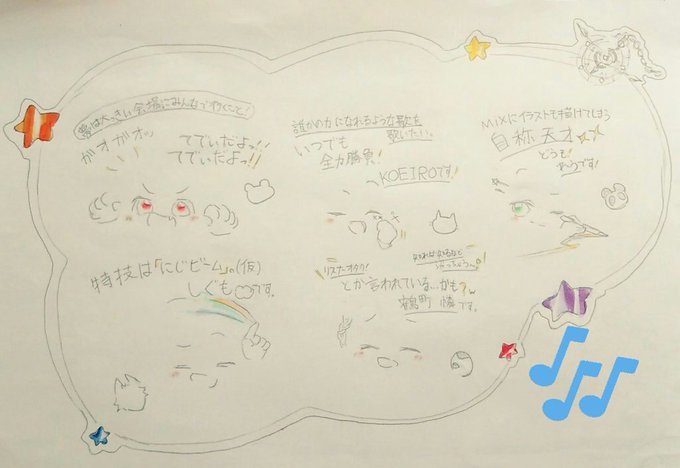 夢は大っきい会場にみんなで行くこと!
ガオガオッ
てでぃだよっ!!
てでぃだよっ!!
誰かの力になれるような歌を
歌いたい。
いつでも
全力勝負!
KOEIROです!
MIXにイラストも描けてしまう
自称天才
どうも!
です!
特技は「にじビーム」。(仮)
しぐも です。
リスナーオタク!
とか言われている…かも?
鶴町 憐です。